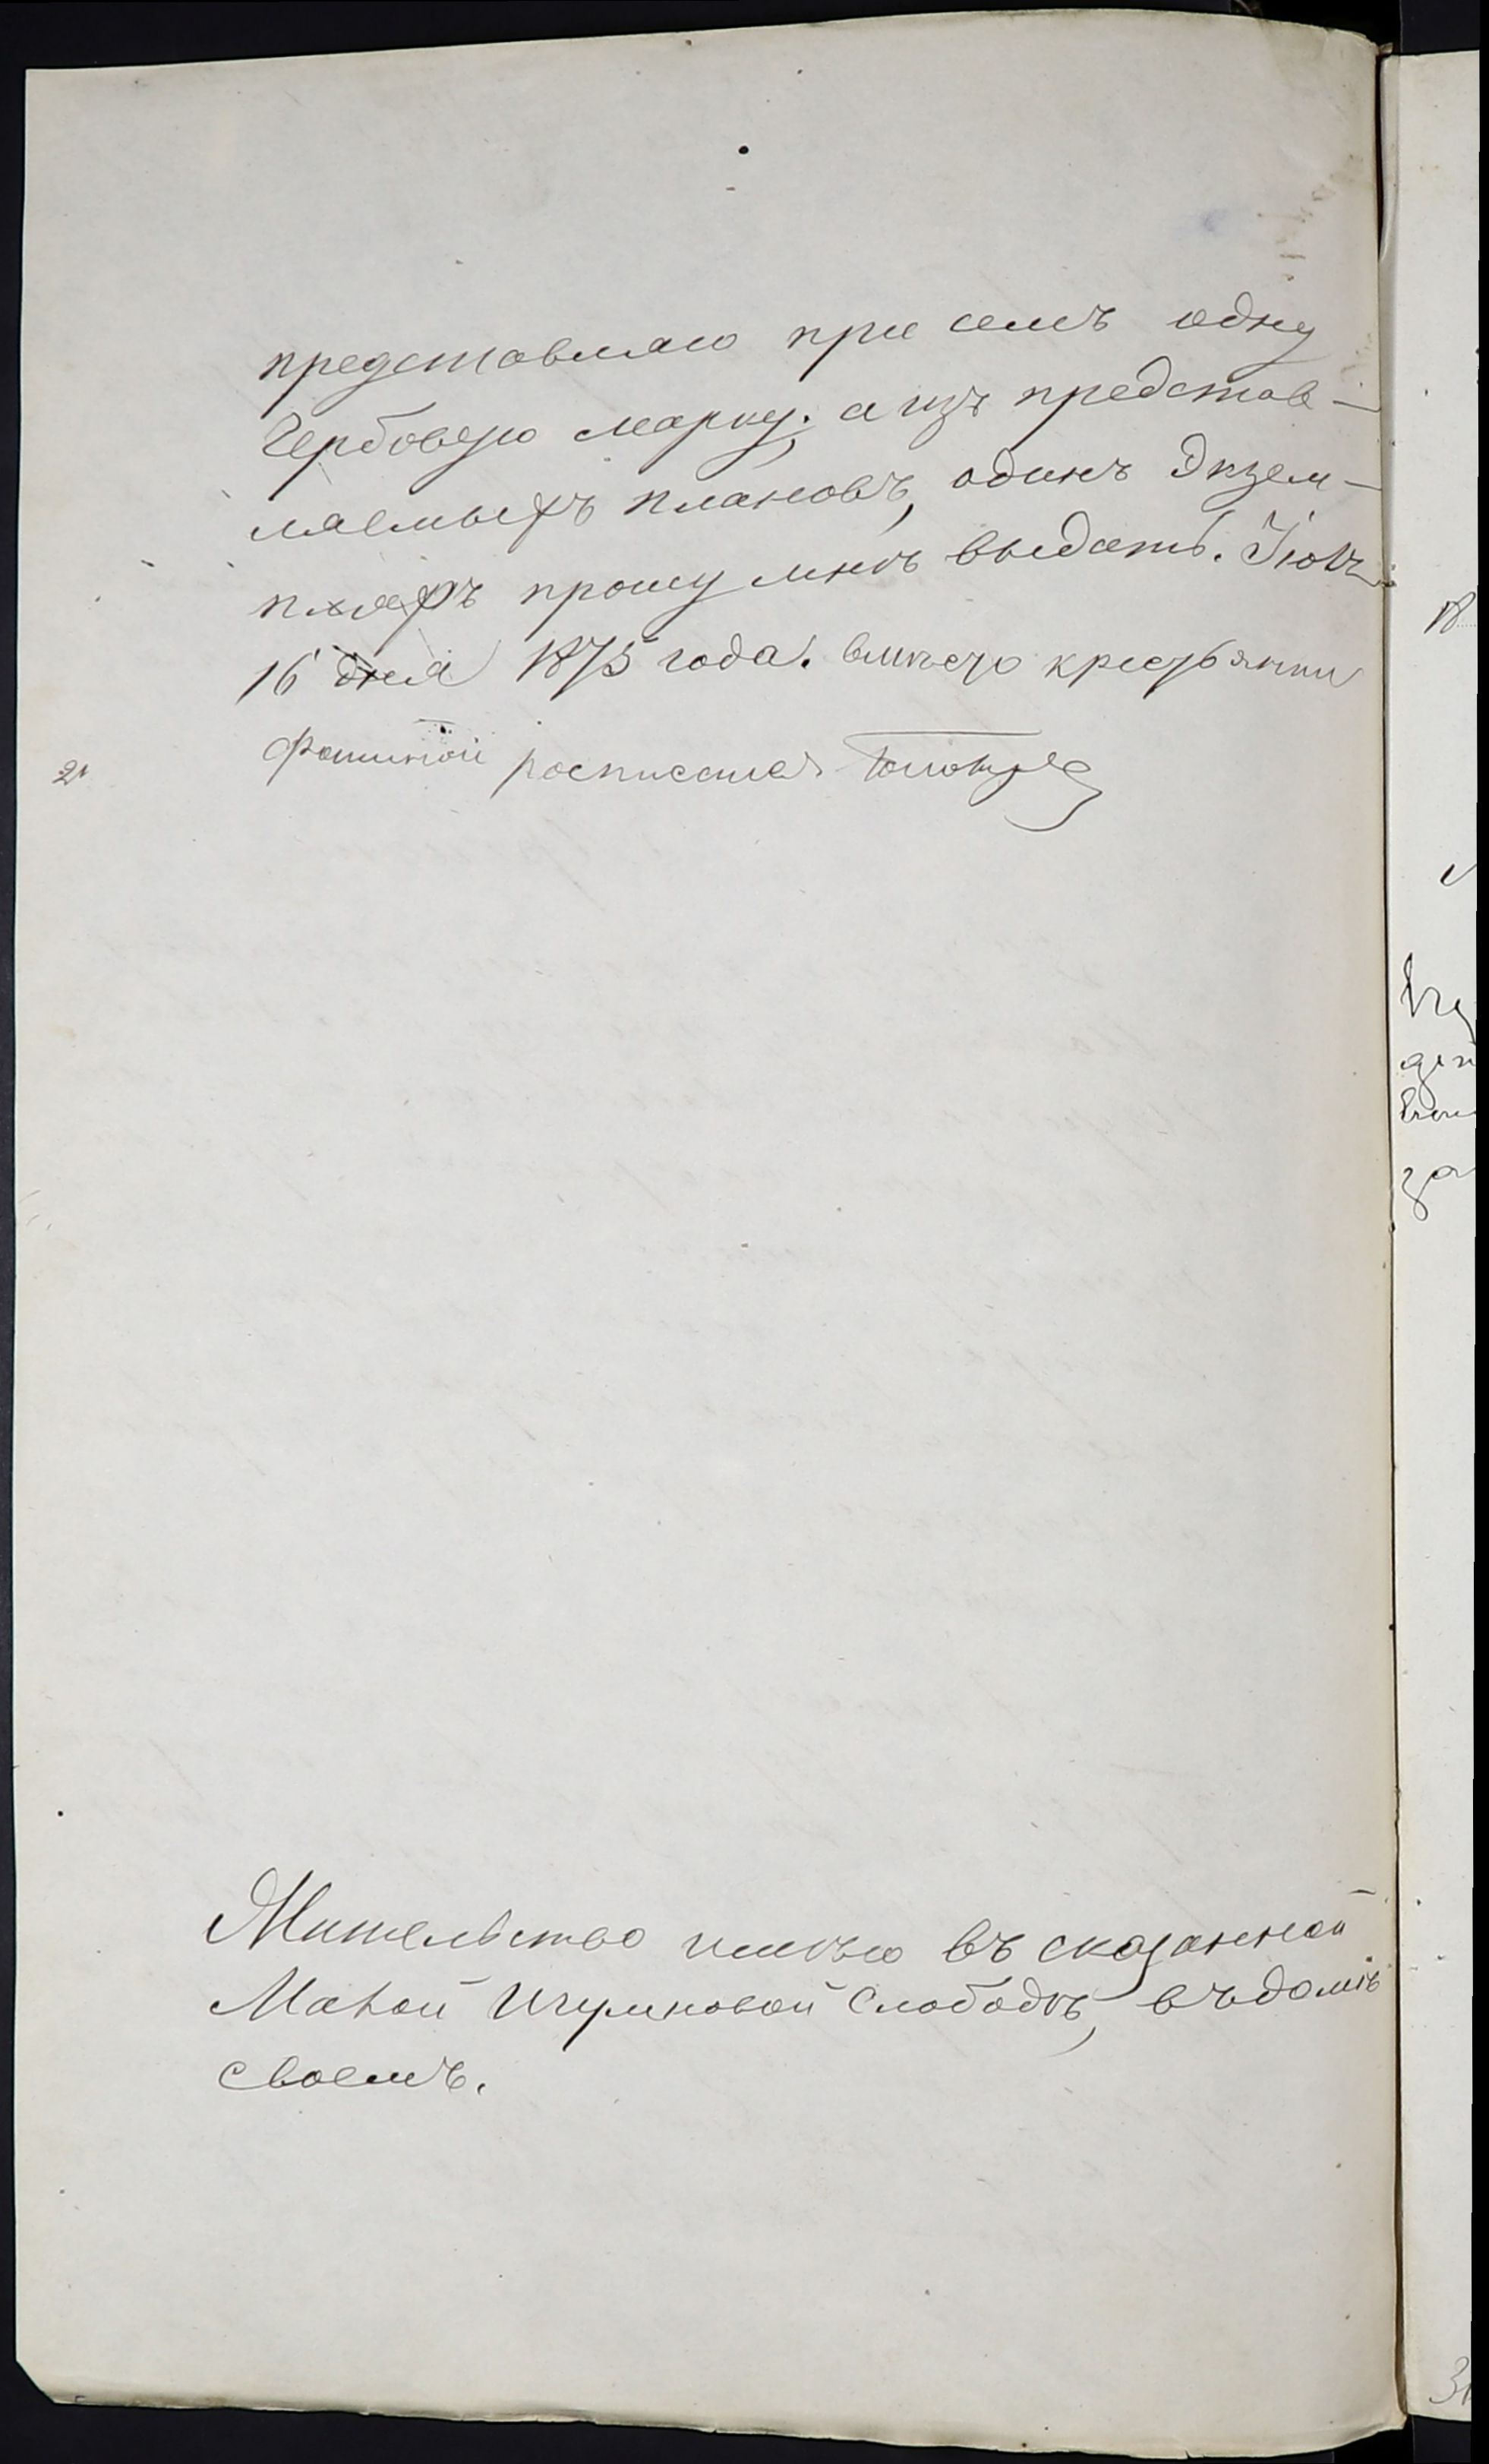 представляю при семъ одну
Гербовую марку; а изъ представ-
ляемыхъ плановъ, одинъ Экзем-
пляръ прошу мнѣ выдать. Іюля
16 дня 1875 года. вмѣсто крестьянки
Фоминой росписался
Жительство имѣю въ сказанной
Малой Игумновой Слободѣ, въ домѣ
своемъ.